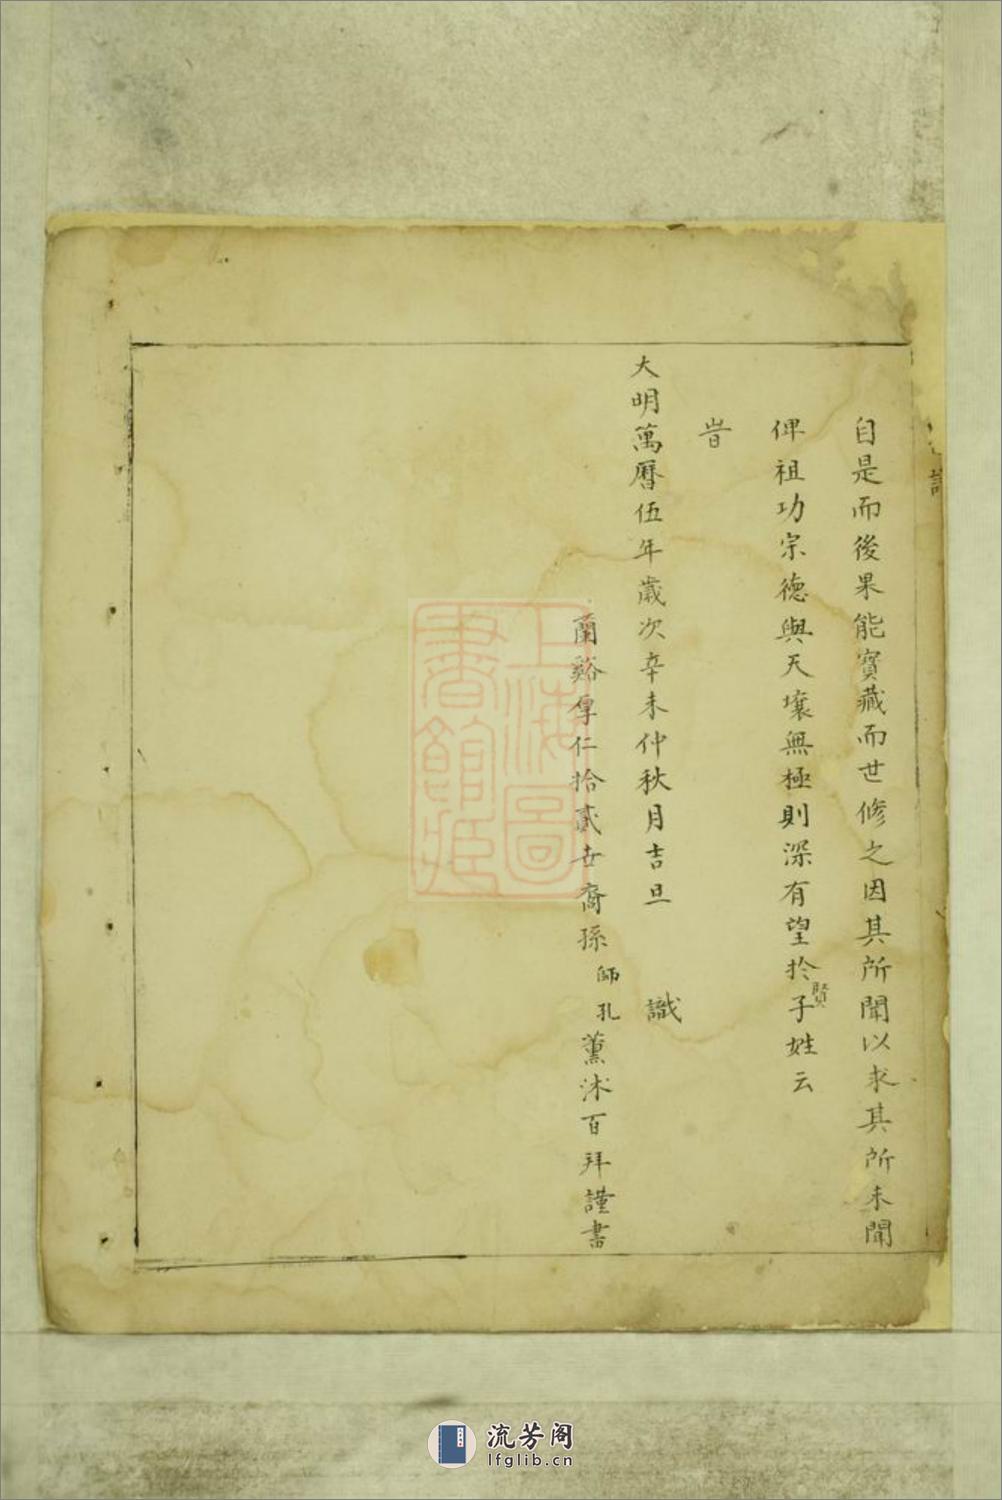 自是而後果能寳藏而世修之因其所聞以求其所未聞
俾祖功宗德與天壤無極則深有望於賢子姓云
旹
大明萬曆伍年歲次辛未仲秋月吉旦 識
蘭谿厚仁拾貳世裔孫師孔薰沐百拜謹書
上海圖
書館藏
流芳阁
lfglib.cn